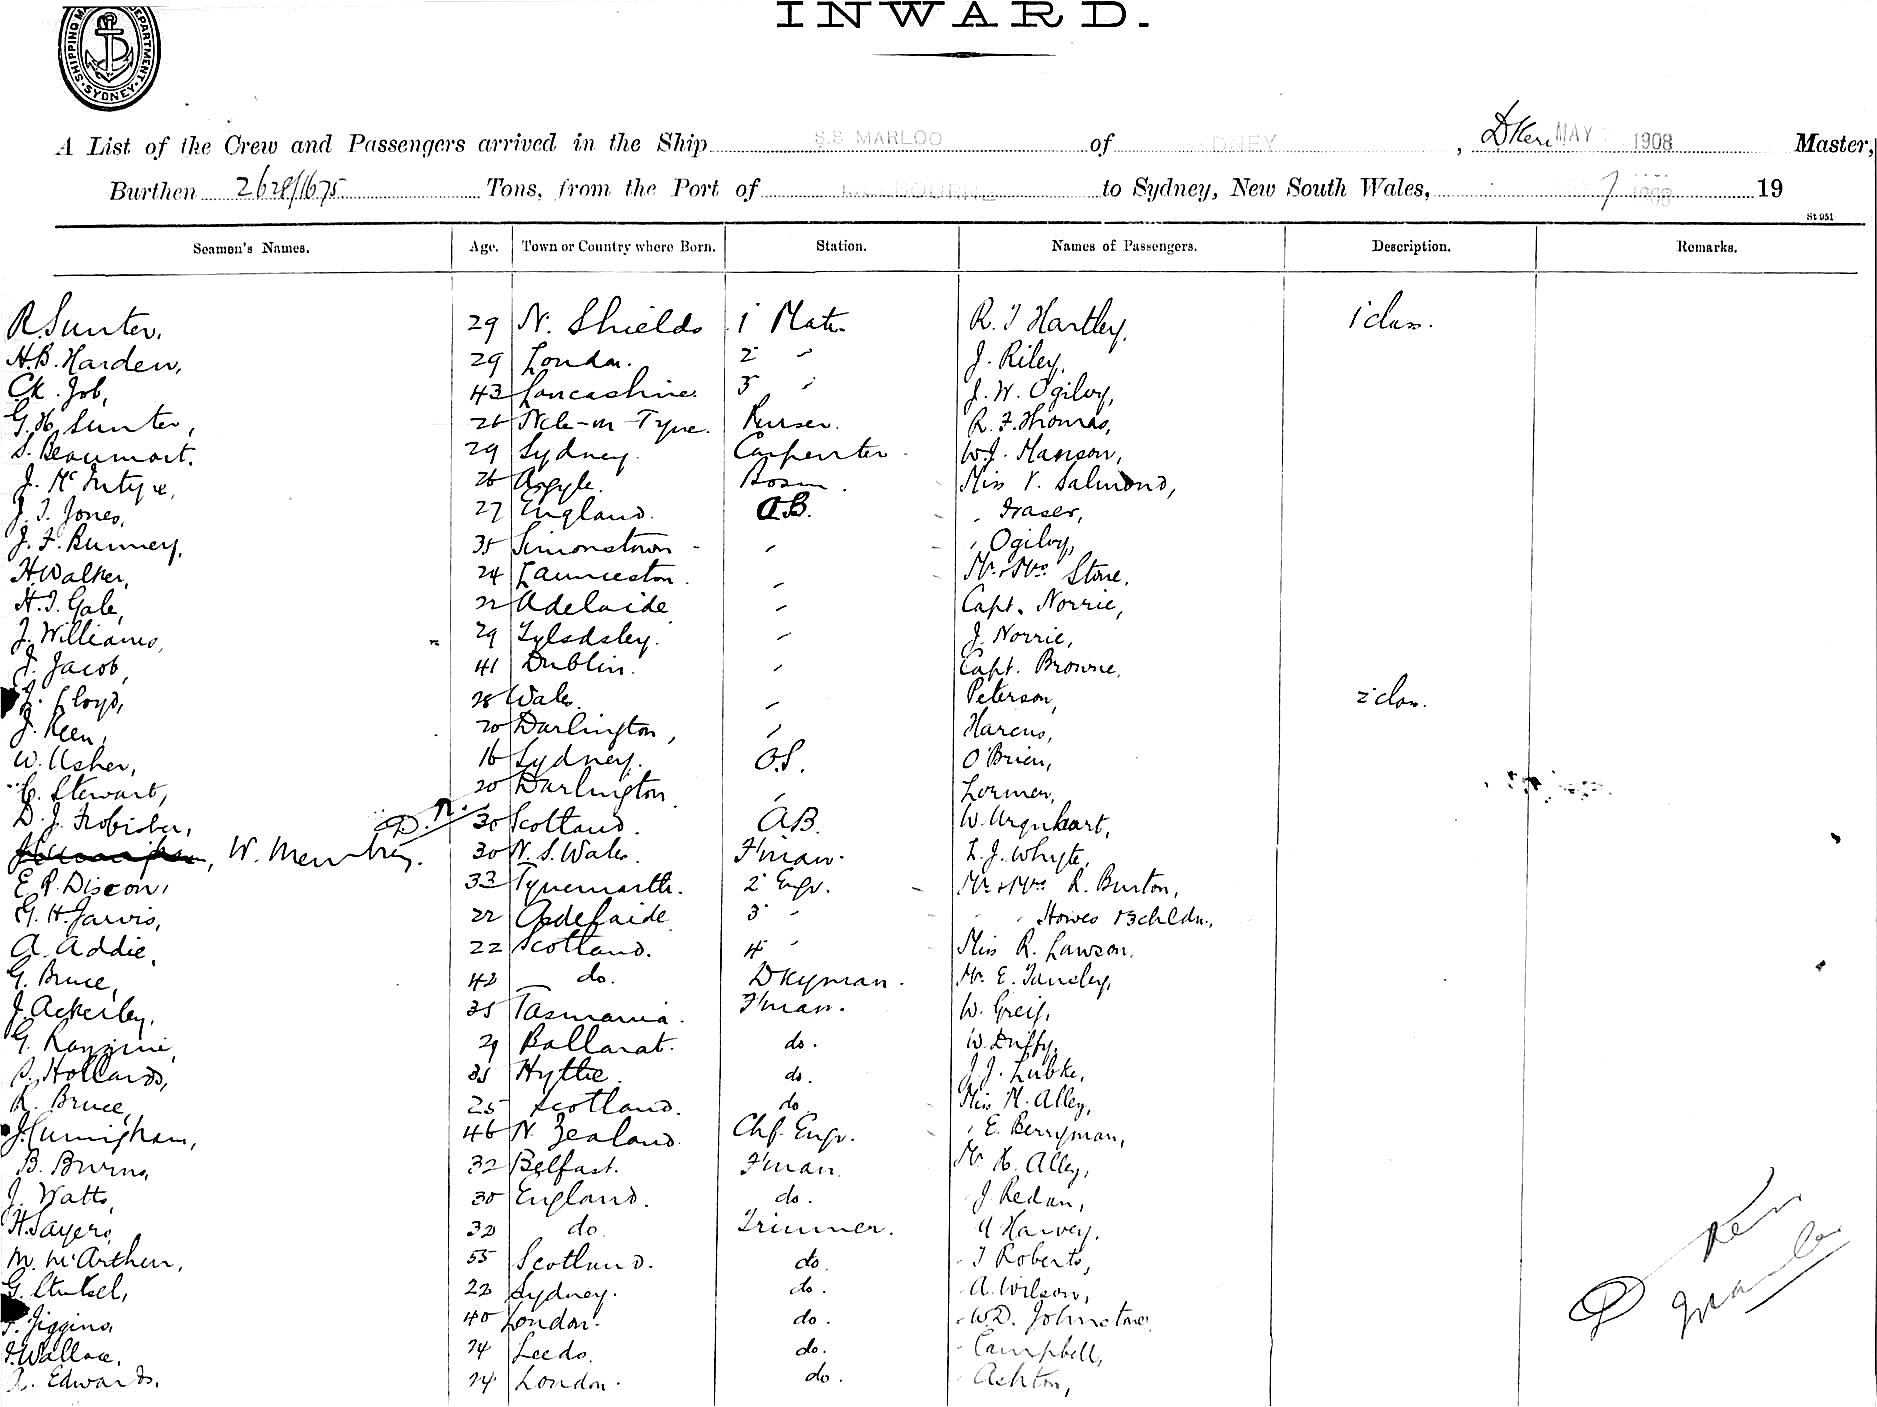 INWARD.
SHIPPING DEPARTMENT SYDNEY
A List of the Crew and Passengers arrived in the Ship S.S MARLOO of DNEY, DKer MAY 1908 Master,
Burthen 2628/1675 Tons, from the Port of BOURNE to Sydney, New South Wales, 7 1908 19
St 951
Seamen's Names. Age. Town or Country where Born. Station. Names of Passengers. Description. Remarks.
R. Sunter, 29 N. Shields 1 Mate R. J Hartley, 1 class.
H.B. Harden, 29 London. 2 " J. Riley,
Ck. Job, 43 Lancashire 3 " J. W. Ogilvy,
G. H. Sunter, 26 Ncle-on-Tyne. Purser. R. F. Thomas,
S. Beaumont. 29 Sydney. Carpenter. W.J. Manson,
J. McIntyre, 26 Argyle. Bosun. Miss V. Salmond,
J. T. Jones, 27 England. A.B. " Fraser,
J. F. Runney, 35 Simonstown " " Ogilvy,
H. Walker, 24 Launceston. " Mr & Mrs Stone,
H. J. Gale, 22 Adelaide " Capt. Norrie,
J. Williams, 29 Tyldsley. " J. Norrie,
J. Jacob, 41 Dublin. " Capt. Browne,
J. Lloyd, 28 Wales. " Peterson, 2 class.
J. Keen, 20 Darlington, " Harcus,
W. Usher, 16 Sydney. O.S. O'Brien,
C. Stewart, 20 Darlington " Lormer,
D. J. Frobisher, D.R. 30 Scotland. AB. W. Urquhart,
W. 30 N. S. Wales. F'man. L. J. Whyte,
E. R. Discon, 33 Tynemouth. 2 Engr. Mr & Mrs R. Burton,
G. H. Jarvis, 22 Adelaide 3 " " " Howes & 3 chldn.,
A. Addie, 22 Scotland. 4 " Miss R. Lawson,
G. Bruce, 42 do. Dkyman. Mr. E. Tansley,
J. Ackerley, 35 Tasmania. F'man. W. Greig,
G. 29 Ballarat. do. W. Duffy,
Hollands, 35 Hythe. do. J. J. Lubke,
R. Bruce, 25 Scotland. do Miss M. Alley,
J. Cunnigham, 46 N. Zealand. Chf. Engr. " E. Berryman,
B. Burns, 32 Belfast. F'man. Mr H. Alley,
J. Watts, 30 England. do. J Redan,
H. Sayers, 32 do. Trimmer. A Harvey,
M. McArthur, 55 Scotland. do. T Roberts,
G. 22 Sydney. do. A. Wilson,
Jiggins, 40 London. do. W.D. Johnstone,
J. Wallace, 24 Leeds. do. Campbell,
A. Edwards, 24 London. do. Ashton,